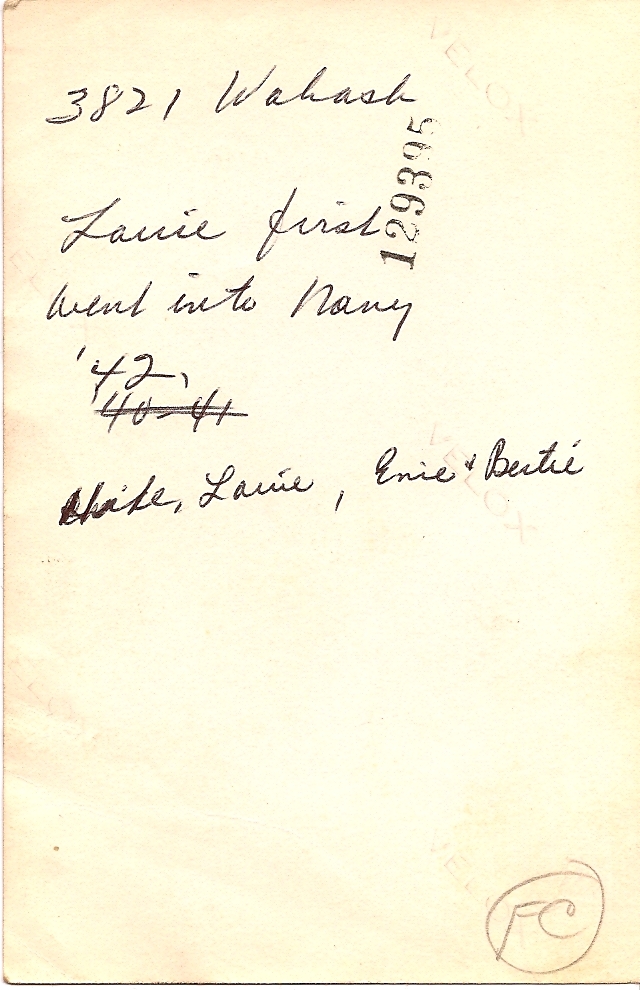 VELOX
3821 Wabash
129395
Louie first
went into Navy
'42,
'40-41
Louie, Ernie & Bertie
VELOX
VELOX
FC